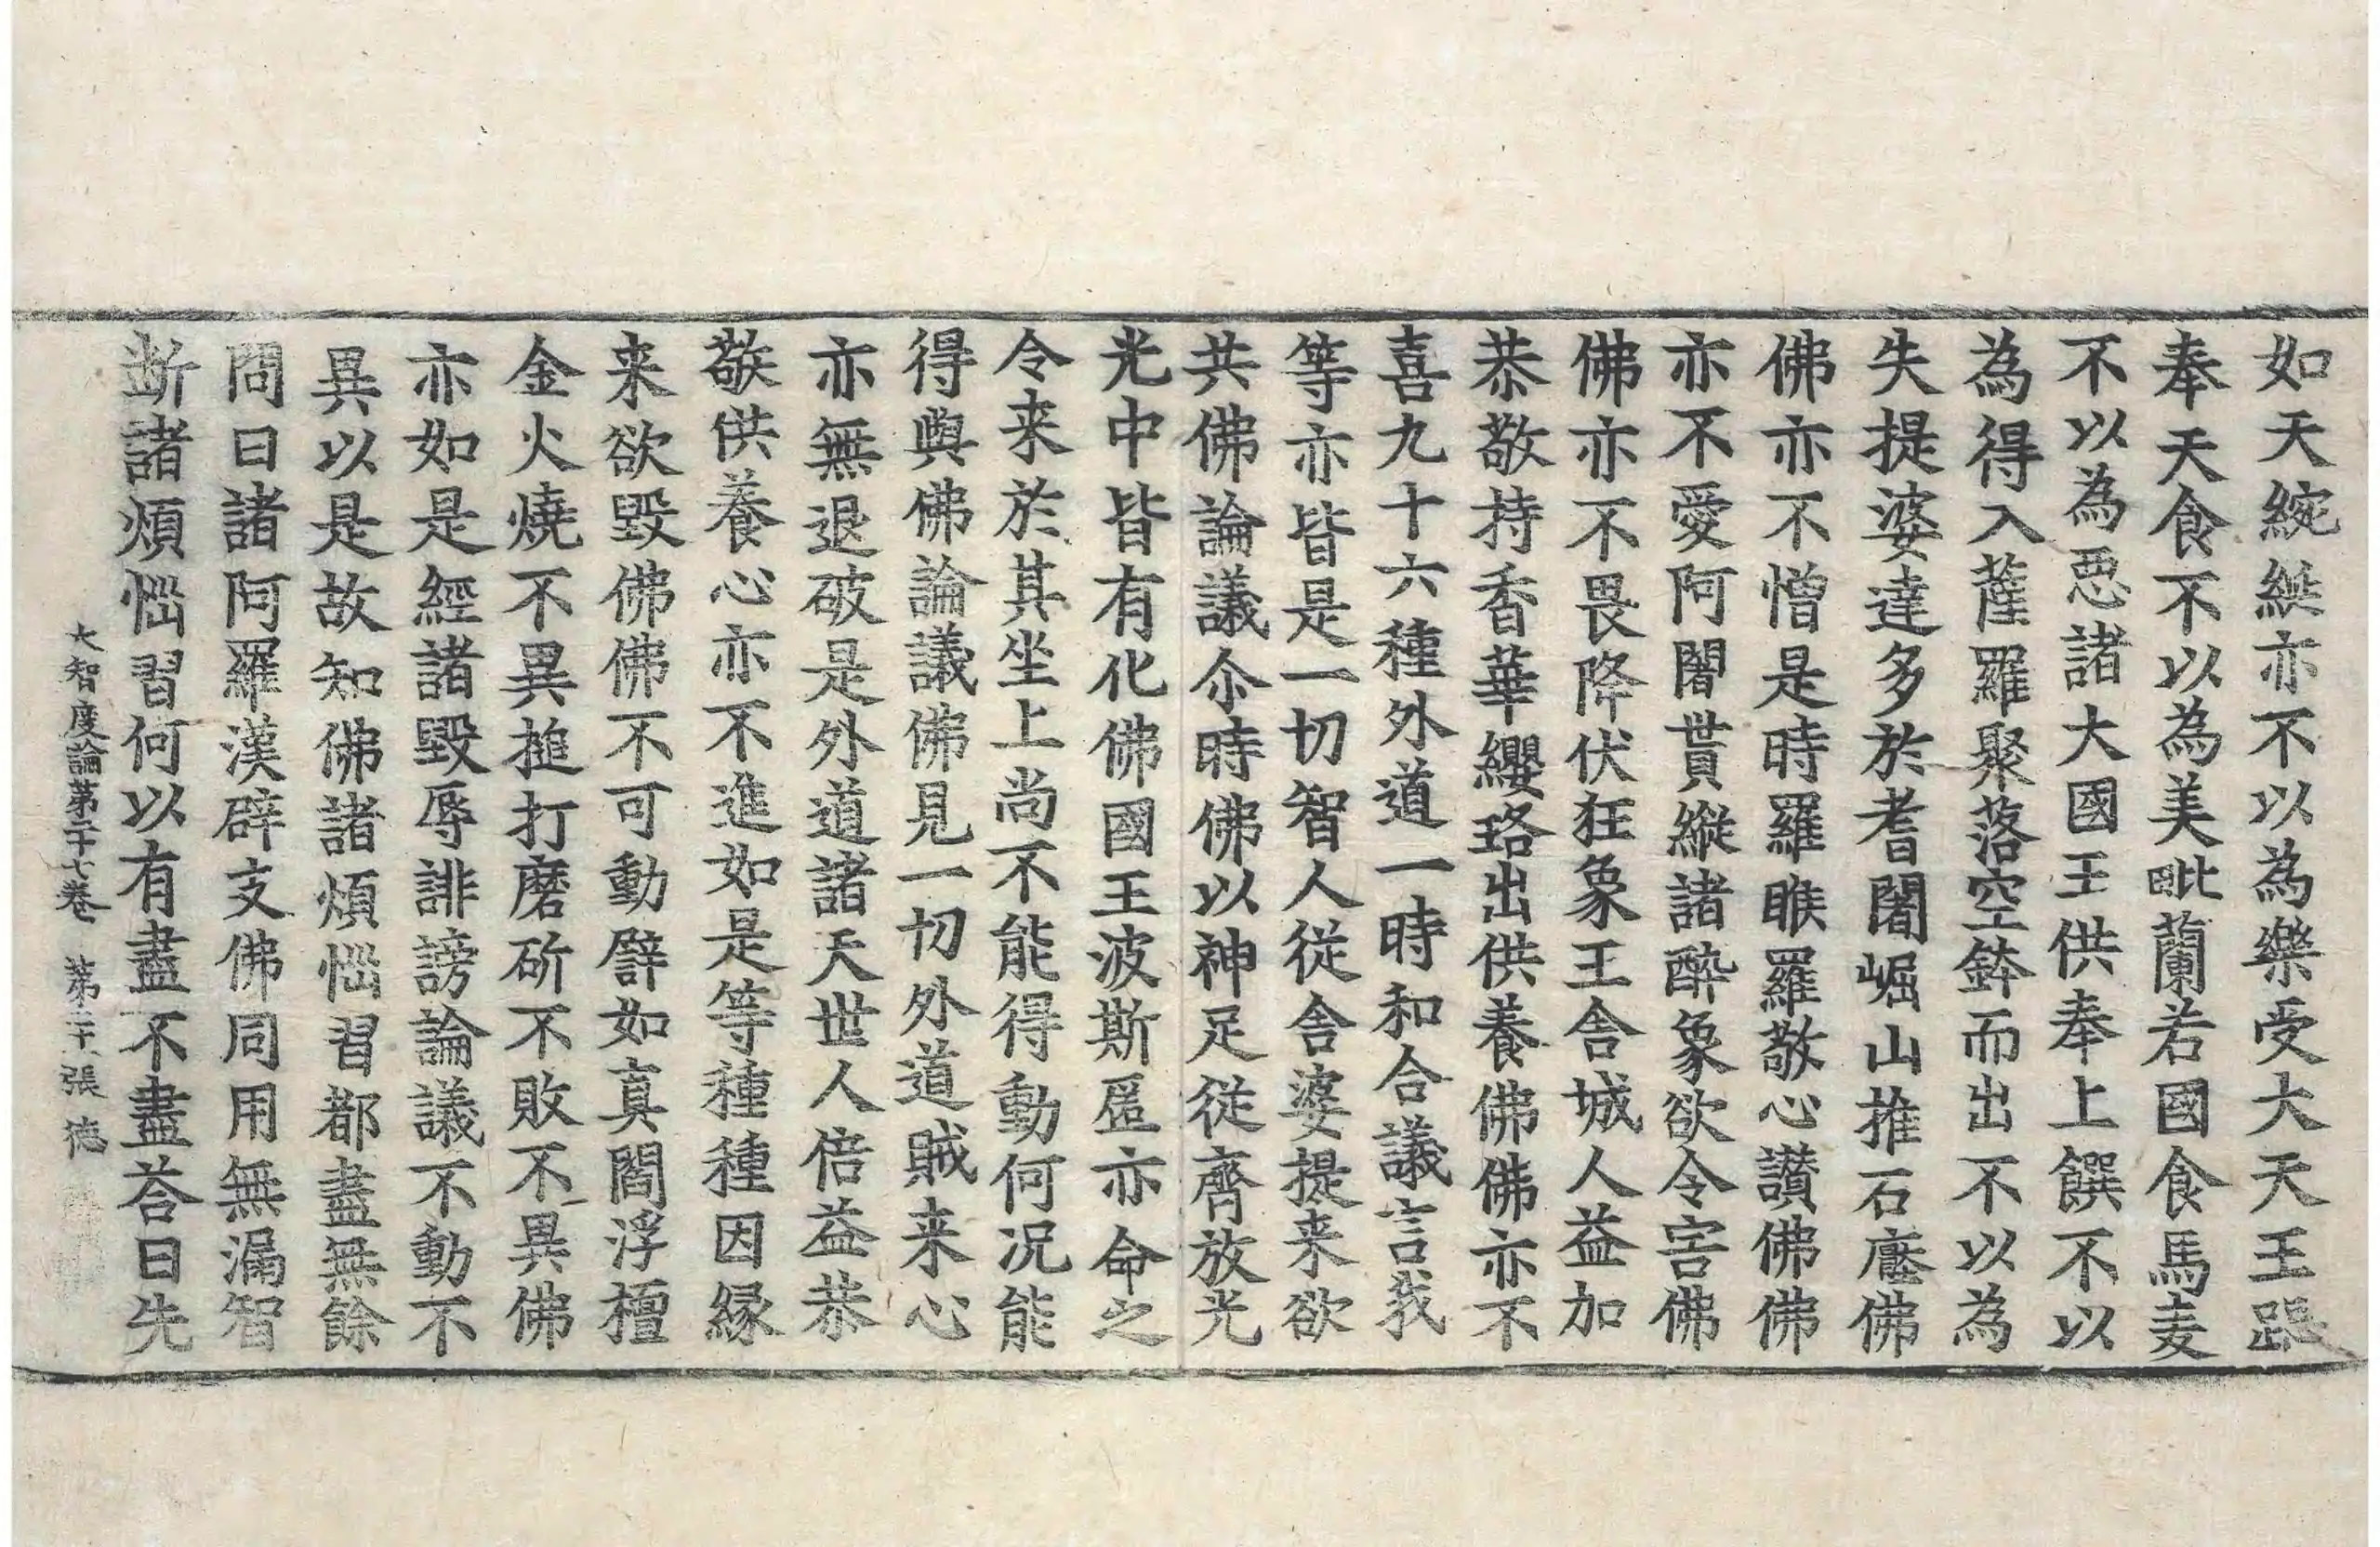 如天綩綖亦不以為樂受大天王跽
奉天食不以為美毗蘭若國食馬麦
不以為惡諸大國王供奉上饌不以
為得入薩羅聚落空鉢而出不以為
失提婆達多於耆闍崛山推石壓佛
佛亦不憎是時羅睺羅敬心讃佛佛
亦不愛阿闍貰縱諸醉象欲令害佛
佛亦不畏降伏狂象王舍城人益加
恭敬持香華纓珞出供養佛佛亦不
喜九十六種外道一時和合議言我
等亦皆是一切智人從舍婆提来欲
共佛論議尒時佛以神足從齊放光
光中皆有化佛國王波斯匿亦命之
令来於其坐上尚不能得動何况能
得與佛論議佛見一切外道賊来心
亦無退破是外道諸天世人倍益恭
敬供養心亦不進如是等種種因緣
来欲毀佛佛不可動譬如真閻浮檀
金火燒不異搥打磨斫不敗不異佛
亦如是經諸毀辱誹謗論議不動不
異以是故知佛諸煩惱習都盡無餘
問曰諸阿羅漢辟支佛同用無漏智
断諸煩惱習何以有盡不盡荅曰先
大智度論第二十七卷 第二十六張 德